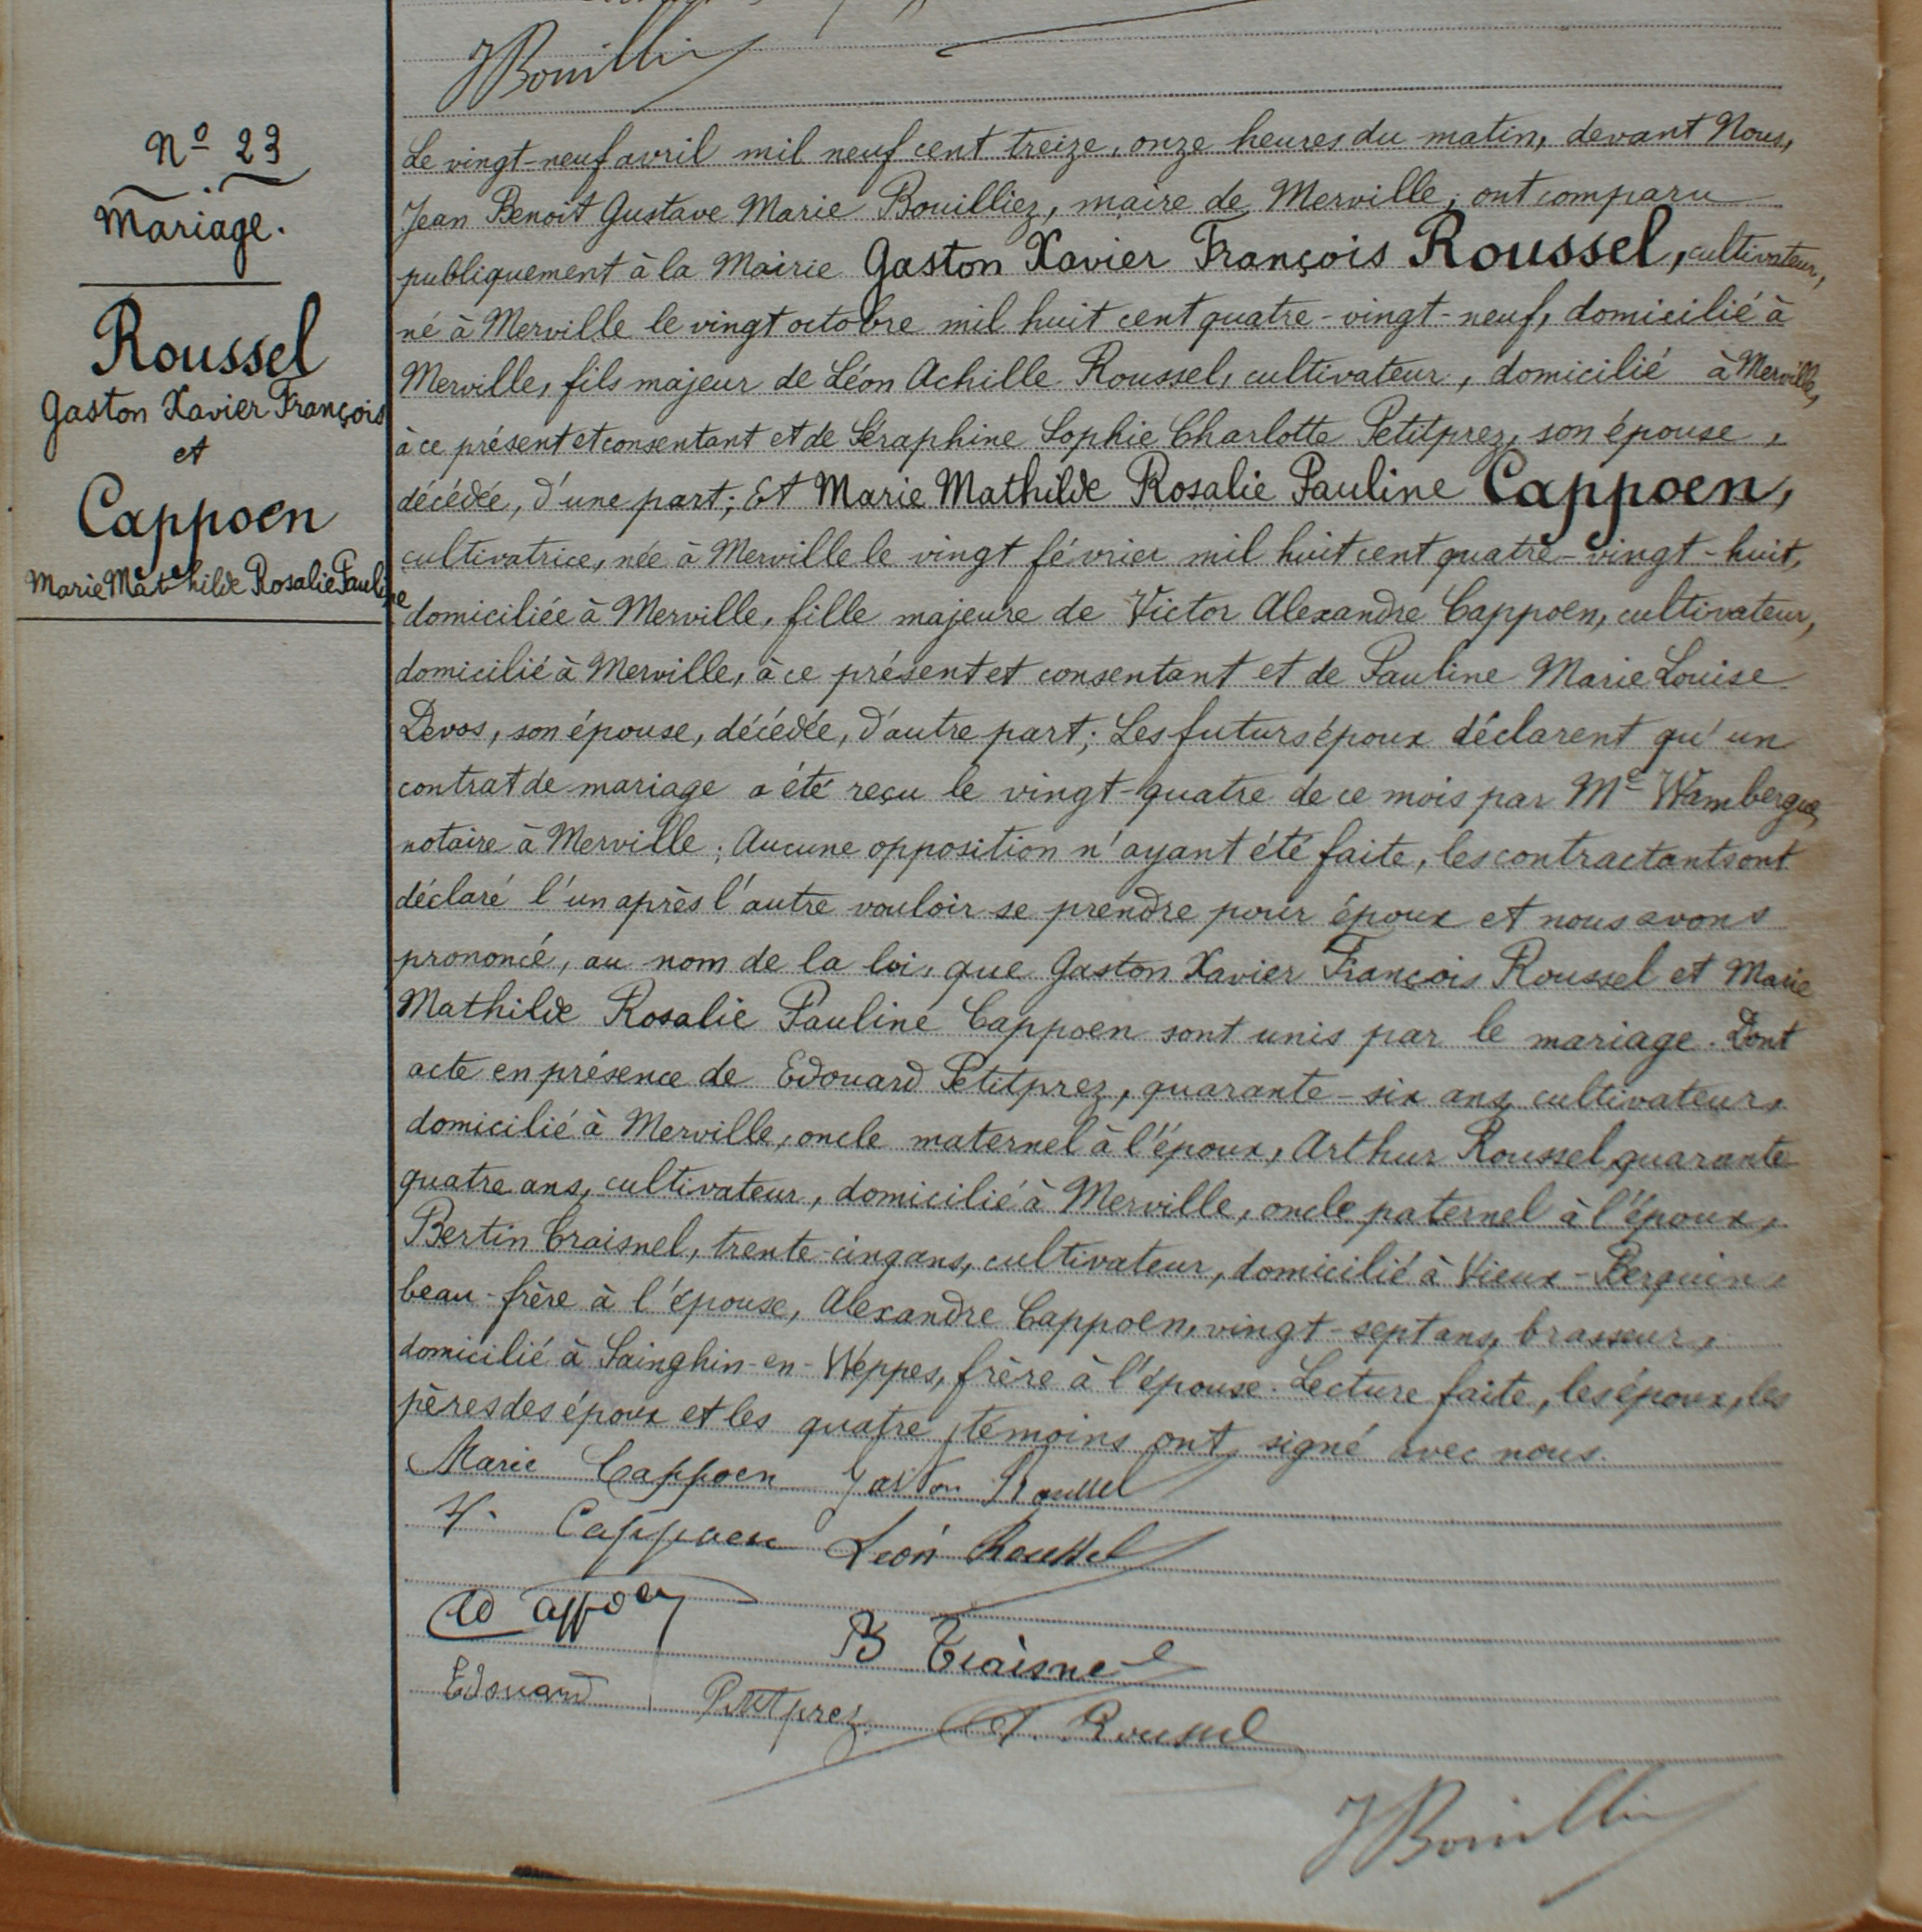 JBouilliez
Nº 23
Mariage.
Roussel
Gaston Xavier François
et
Cappoen
Marie Mathilde Rosalie Pauline
Le vingt-neuf avril mil neuf cent treize, onze heures du matin, devant Nous,
Jean Benoît Gustave Marie Bouilliez, maire de Merville, ont comparu
publiquement à la Mairie Gaston Xavier François Roussel, cultivateur,
né à Merville le vingt octobre mil huit cent quatre-vingt-neuf, domicilié à
Merville, fils majeur de Léon Achille Roussel, cultivateur, domicilié à Merville,
à ce présent et consentant et de Séraphine Sophie Charlotte Petitprez, son épouse,
décédée, d'une part; Et Marie Mathilde Rosalie Pauline Cappoen,
cultivatrice, née à Merville le vingt février mil huit cent quatre-vingt-huit,
domiciliée à Merville, fille majeure de Victor Alexandre Cappoen, cultivateur,
domicilié à Merville, à ce présent et consentant et de Pauline Marie Louise
Devos, son épouse, décédée, d'autre part; Les futurs époux déclarent qu'un
contrat de mariage a été reçu le vingt-quatre de ce mois par Me Wambergue,
notaire à Merville; Aucune opposition n'ayant été faite, les contractants ont
déclaré l'un après l'autre vouloir se prendre pour époux et nous avons
prononcé, au nom de la loi, que Gaston Xavier François Roussel et Marie
Mathilde Rosalie Pauline Cappoen sont unis par le mariage. Dont
acte en présence de Edouard Petitprez, quarante-six ans, cultivateur,
domicilié à Merville, oncle maternel à l'époux, Arthur Roussel, quarante
quatre ans, cultivateur, domicilié à Merville, oncle paternel à l'époux,
Bertin Craisnel, trente-cinq ans, cultivateur, domicilié à Vieux-Berquin,
beau-frère à l'épouse, Alexandre Cappoen, vingt-sept ans, brasseur,
domicilié à Sainghin-en-Weppes, frère à l'épouse. Lecture faite, les époux, les
pères des époux et les quatre témoins ont signé avec nous.
Marie Cappoen Gaston Roussel
V. Cappoen Léon Roussel
Cappoen
B Craisnel
Edouard Petitprez A. Roussel
JBouilliez